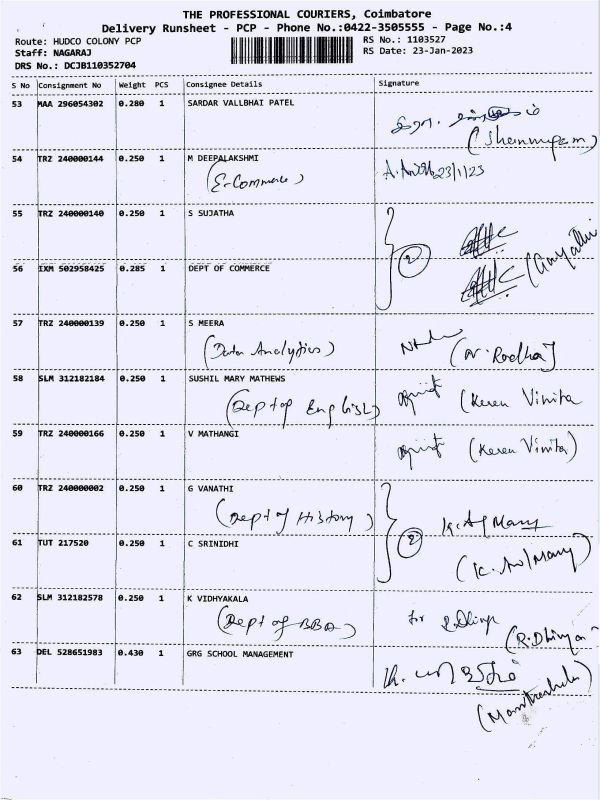 THE PROFESSIONAL COURIERS, Coimbatore
Delivery Runsheet - PCP - Phone No.:0422-3505555 - Page No.:4
Route: HUDCO COLONY PCP RS No.: 1103527
Staff: NAGARAJ RS Date: 23-Jan-2023
DRS No.: DCJB110352704
S No Consignment No Weight PCS Consignee Details Signature
53 MAA 296054302 0.280 1 SARDAR VALLBHAI PATEL
(Shanmugam)
54 TRZ 240000144 0.250 1 M DEEPALAKSHMI
(E-Commerce) 23/1/23
55 TRZ 240000140 0.250 1 S SUJATHA
2
(Gayathri
56 IXM 502958425 0.285 1 DEPT OF COMMERCE
57 TRZ 240000139 0.250 1 S MEERA
(Data Analytics) (N. Radha)
58 SLM 312182184 0.250 1 SUSHIL MARY MATHEWS
(Dept of English) (Keren Vinita
59 TRZ 240000166 0.250 1 V MATHANGI
(Keren Vinita)
60 TRZ 240000002 0.250 1 G VANATHI
(Dept of History) 2
61 TUT 217520 0.250 1 C SRINIDHI
62 SLM 312182578 0.250 1 K VIDHYAKALA
(Dept of BBA) for
(R. Dhivya
63 DEL 528651983 0.430 1 GRG SCHOOL MANAGEMENT